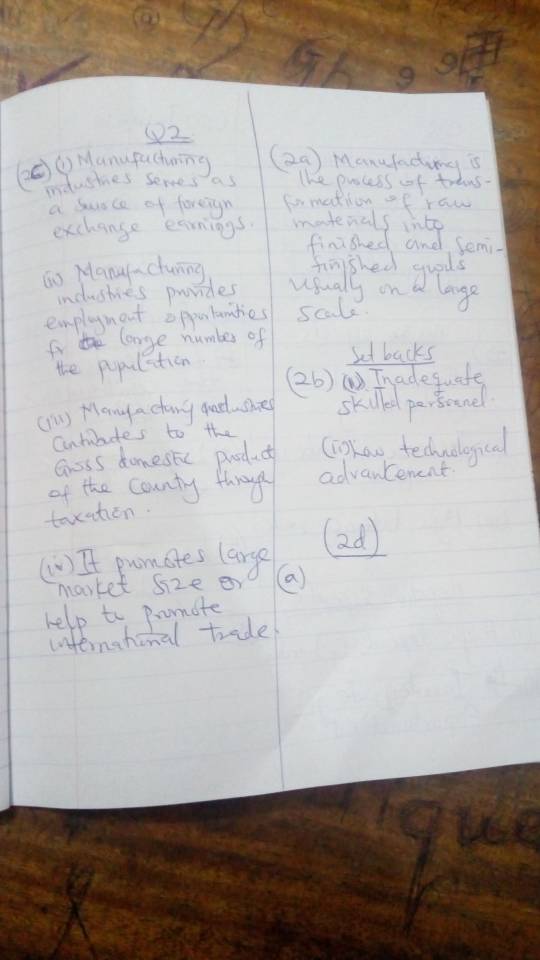 Q2
(2c) (i) Manufacturing
industries serves as
a source of foreign
exchange earnings.
(ii) Manufacturing
industries provides
employment opportunities
fr large number of
the population.
(iii) Manufacturing industries
Contributes to the
Gross domestic product
of the Country through
taxation.
(iv) It promotes large
market size or
help to promote
international trade.
(2a) Manufacturing is
the process of trans-
formation of raw
materials into
finished and semi-
finished goods
usually on a large
scale.
Set backs
(2b) (i) Inadequate
skilled personnel.
(ii) Low technological
advancement.
(2d)
(a)
que